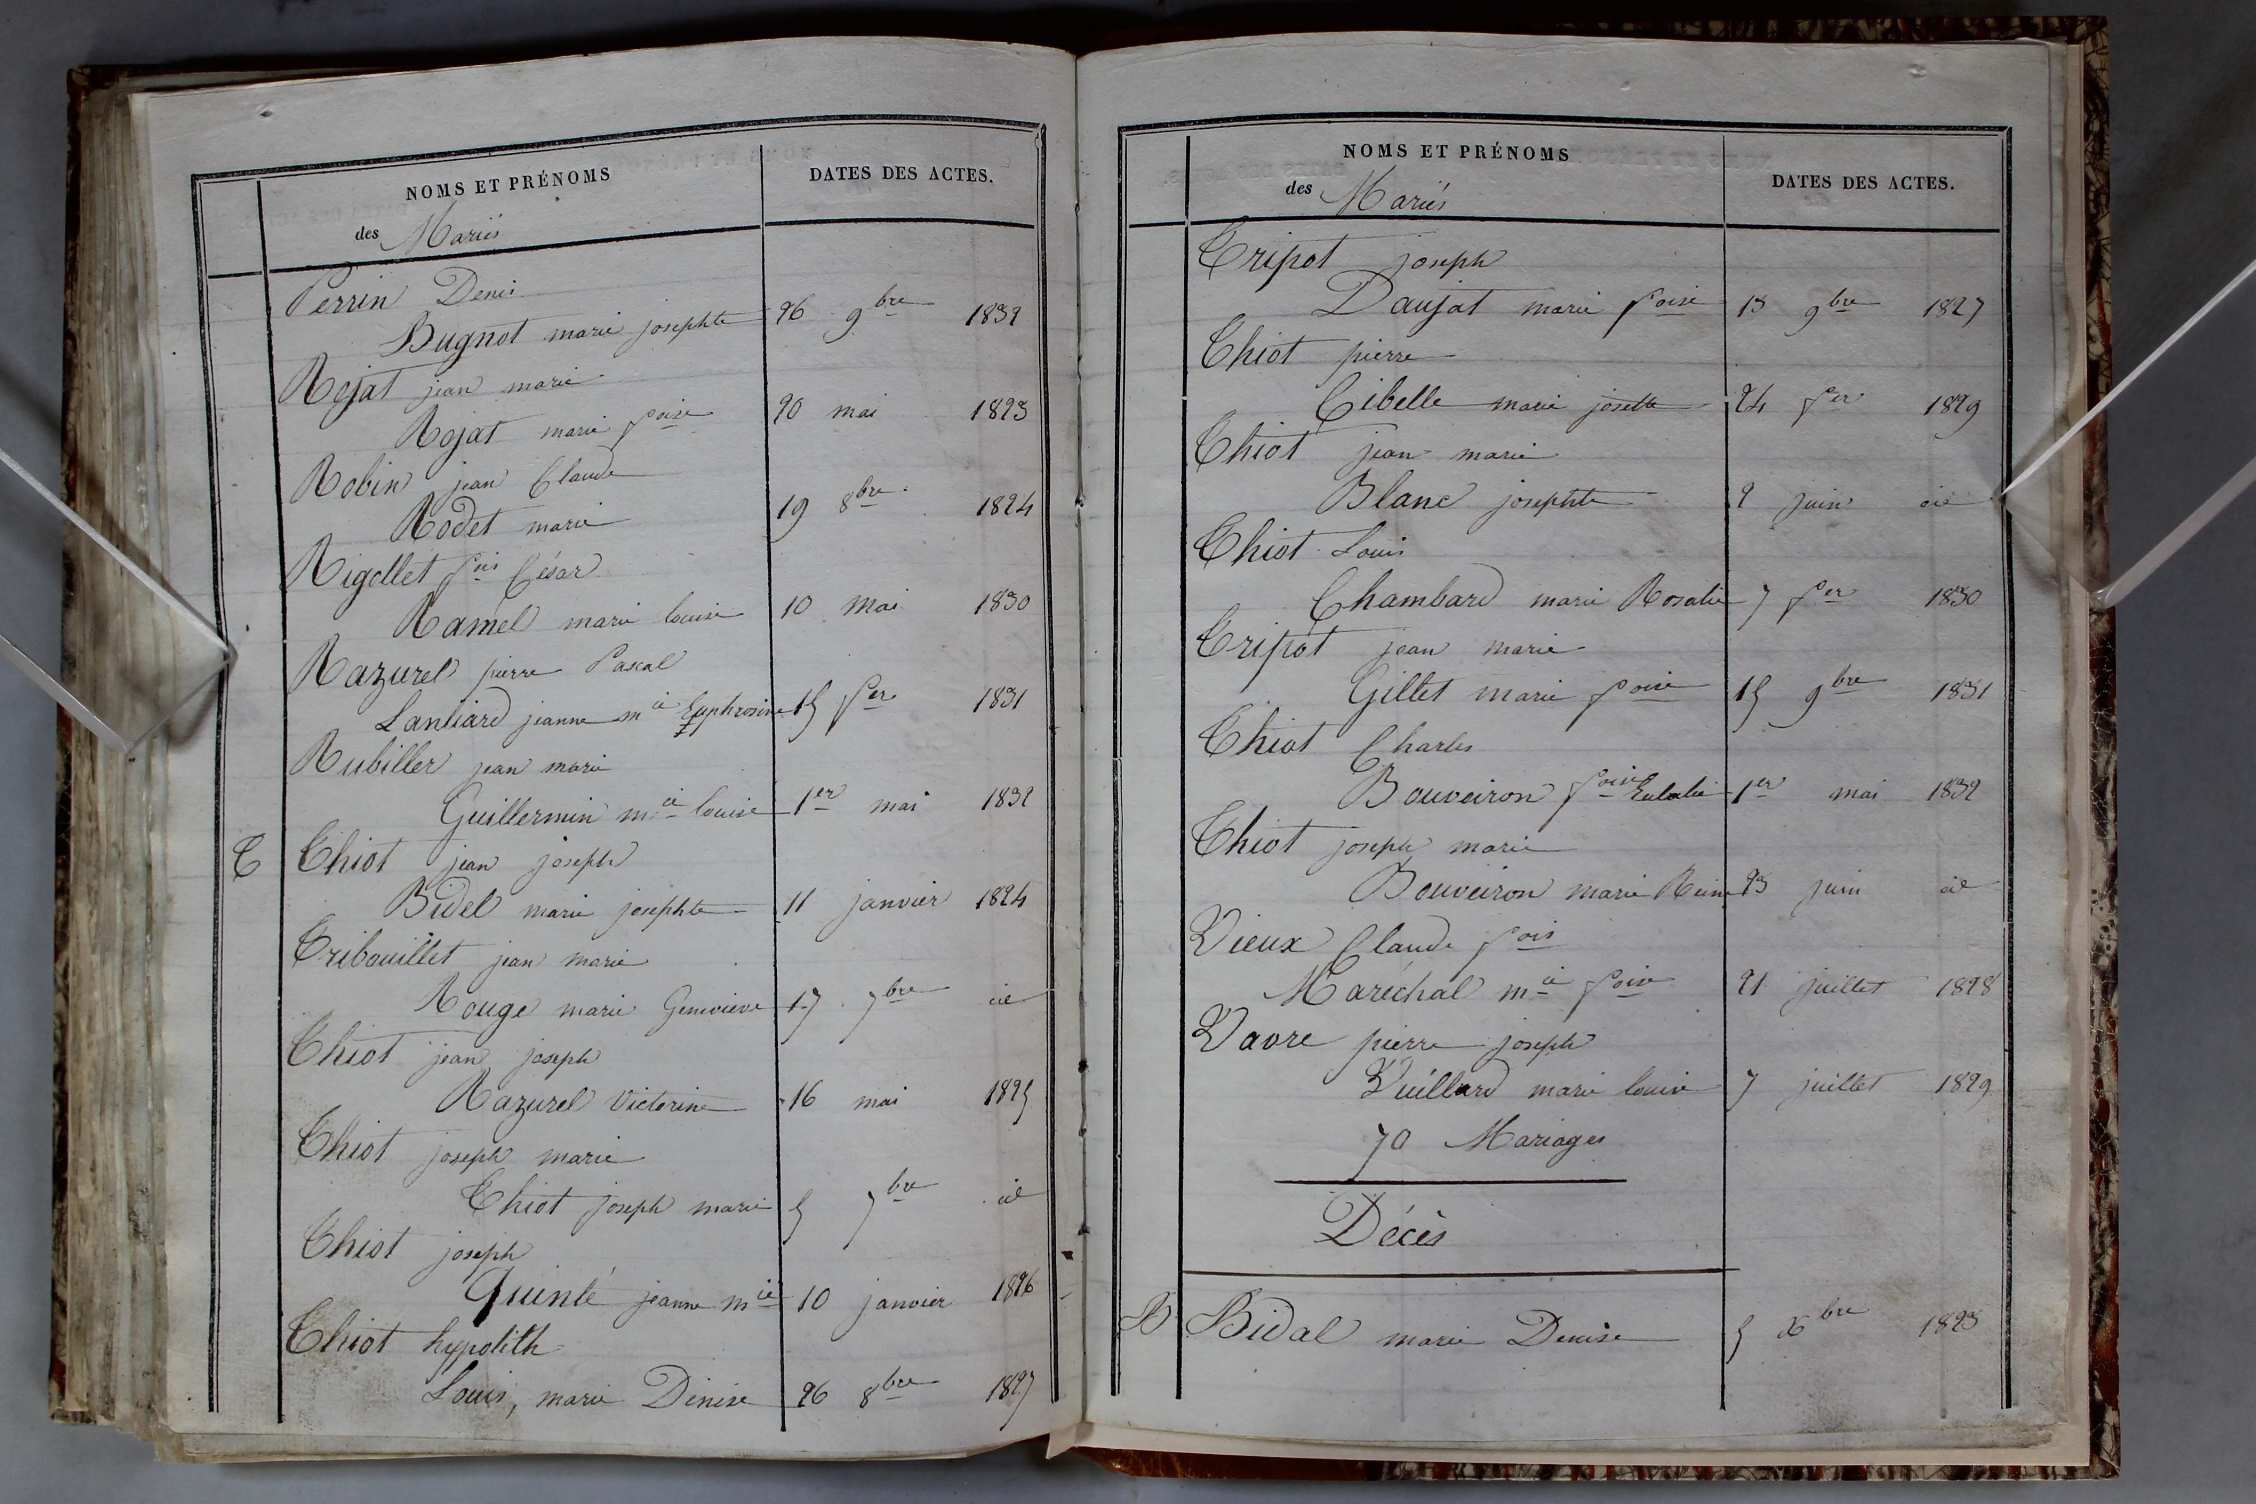 NOMS ET PRÉNOMS
DATES DES ACTES.
des Mariés
Perrin Denis
Bugnot marie josephte 26 9bre 1832
Rojat jean marie
Rojat marie foise 20 mai 1823
Robin jean Claude
Rodet marie 19 8bre 1824
Rigollet fois César
Ramel marie louise 10 mai 1830
Razurel pierre Pascal
Lanliard jeanne mie Euphrosine 15 fer 1831
Rubiller jean marie
Guillermin mie louise 1er mai 1832
T Thiot jean joseph
Bidel marie josephte 11 janvier 1824
Tribouillet jean marie
Rouge marie Geneviève 17 7bre id
Thiot jean joseph
Razurel Victorine 16 mai 1825
Thiot joseph marie
Thiot joseph marie 5 7bre id
Thiot joseph
Quinlé jeanne mie 10 janvier 1826
Thiot hypolith
Louis, marie Denise 26 8bre 1827
NOMS ET PRÉNOMS
DATES DES ACTES.
des Mariés
Tripot joseph
Daujat marie foise 13 9bre 1827
Thiot pierre
Cibelle marie josette 24 fer 1829
Thiot jean marie
Blanc josephte 2 juin id
Thiot Louis
Chambard marie Rosalie 7 fer 1830
Tripot jean marie
Gillet marie foise 15 9bre 1831
Thiot Charles
Bouveiron foise Eulalie 1er mai 1832
Thiot joseph marie
Bouveiron marie Reine 23 juin id
Vieux Claude fois
Maréchal mie foise 21 juillet 1828
Vavre pierre joseph
Vuillard marie louise 7 juillet 1829
70 Mariages
Décès
B Bidal marie Denise 5 Xbre 1823